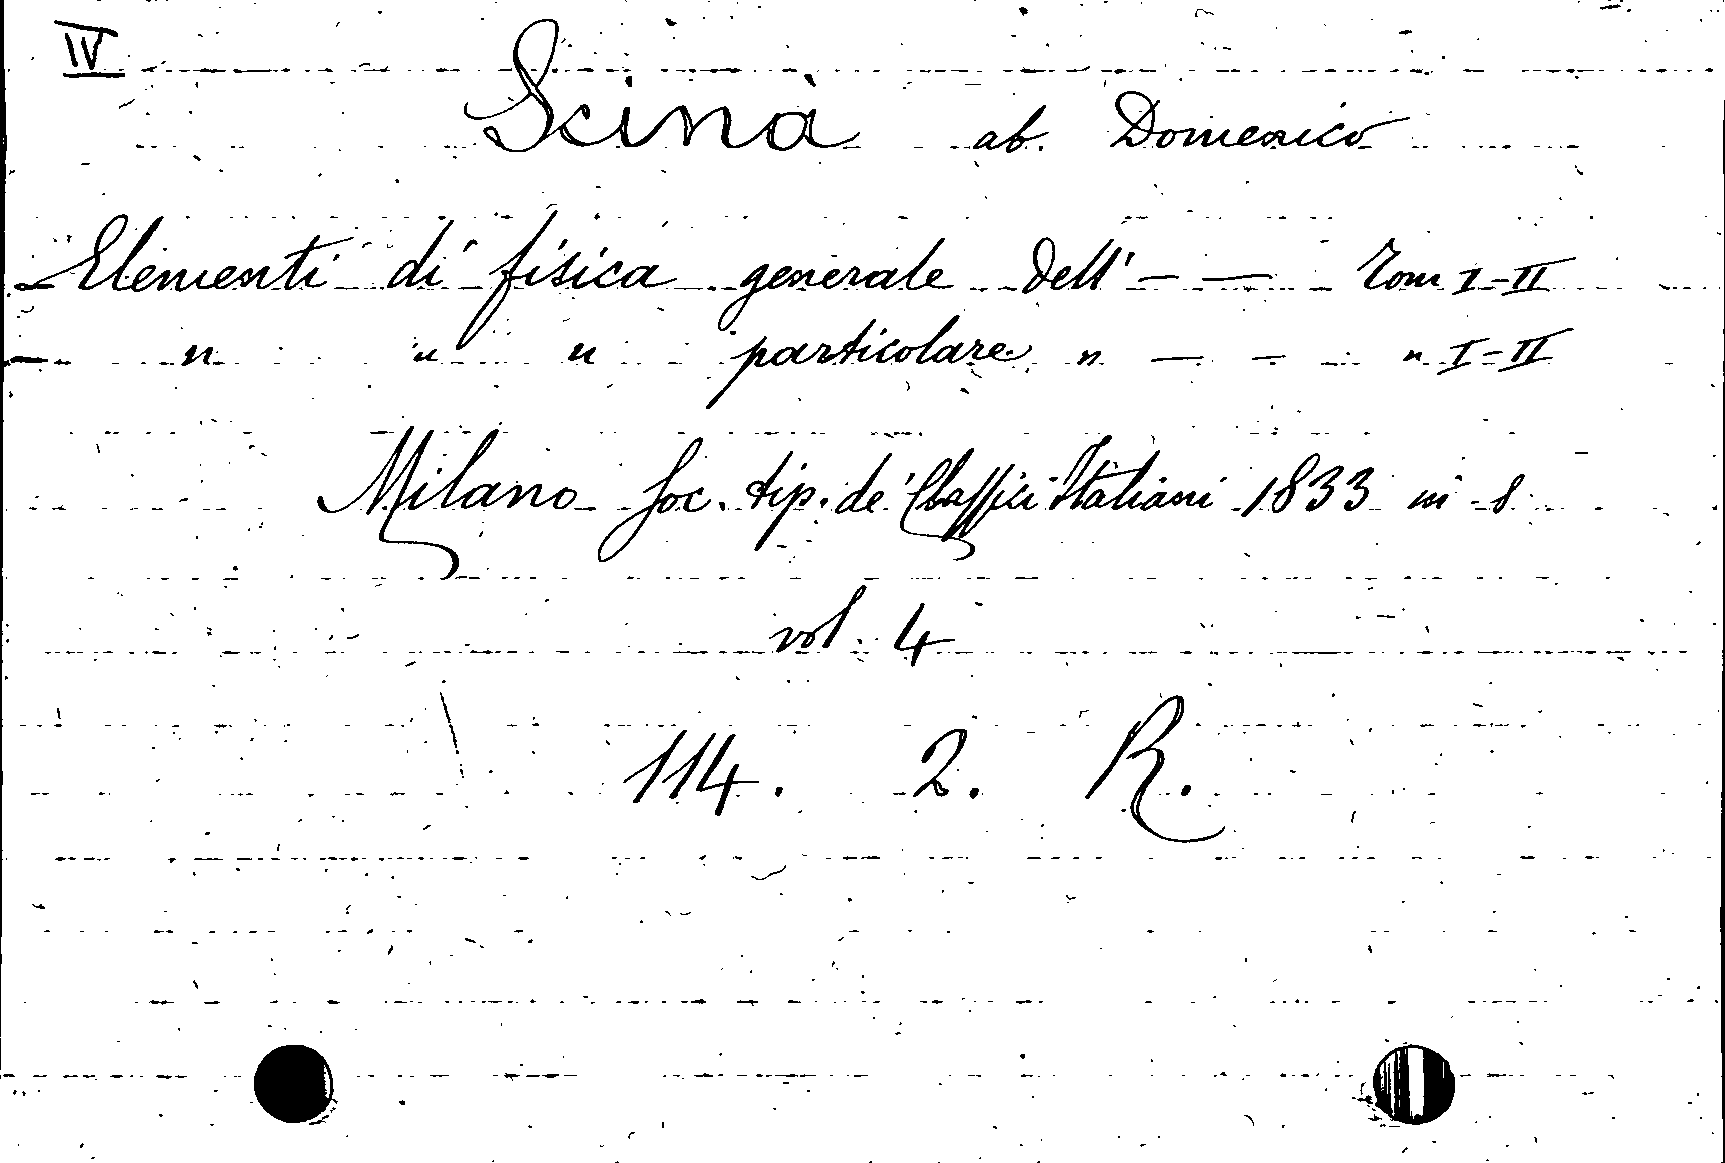 IV
Scinà ab. Domenico
- Elementi di fisica generale dell' — — Tom I-II
- " " " particolare " — — " I-II
Milano Soc. tip. de' Classici Italiani 1833 in 8
vol. 4
114. 2. R.